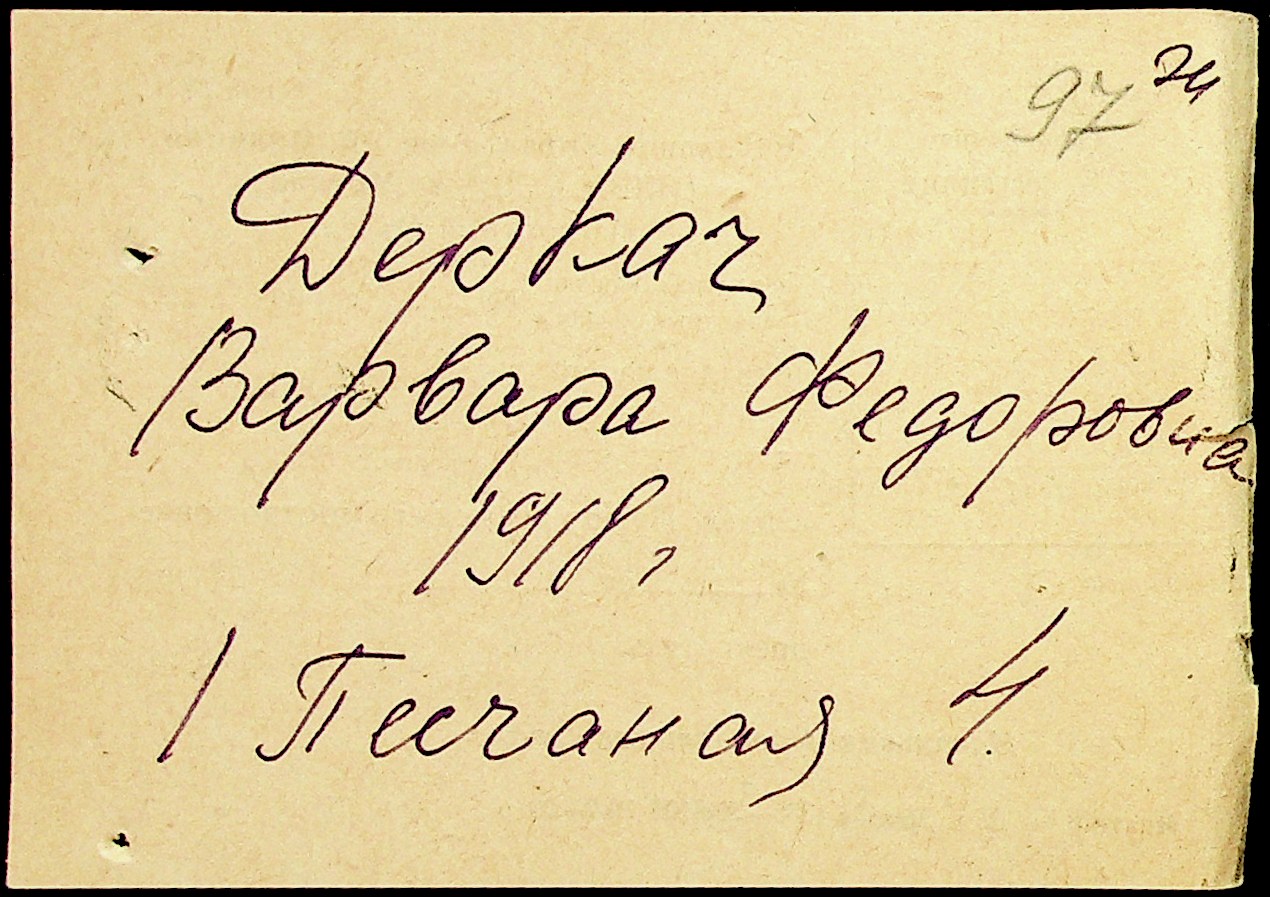 97 74
Деркач
Варвара Федоровна
1918 г
1 Песчаная 4.